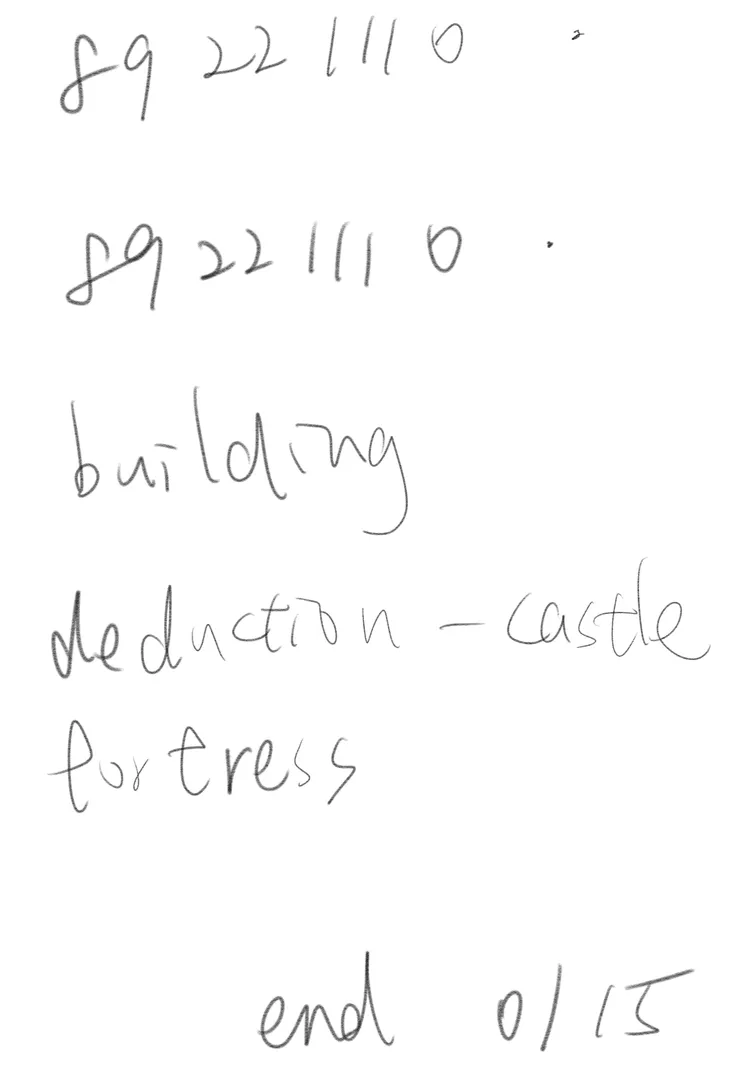 89 22 111 0 .
89 22 111 0 .
building
deduction - castle
fortress
end 0/15